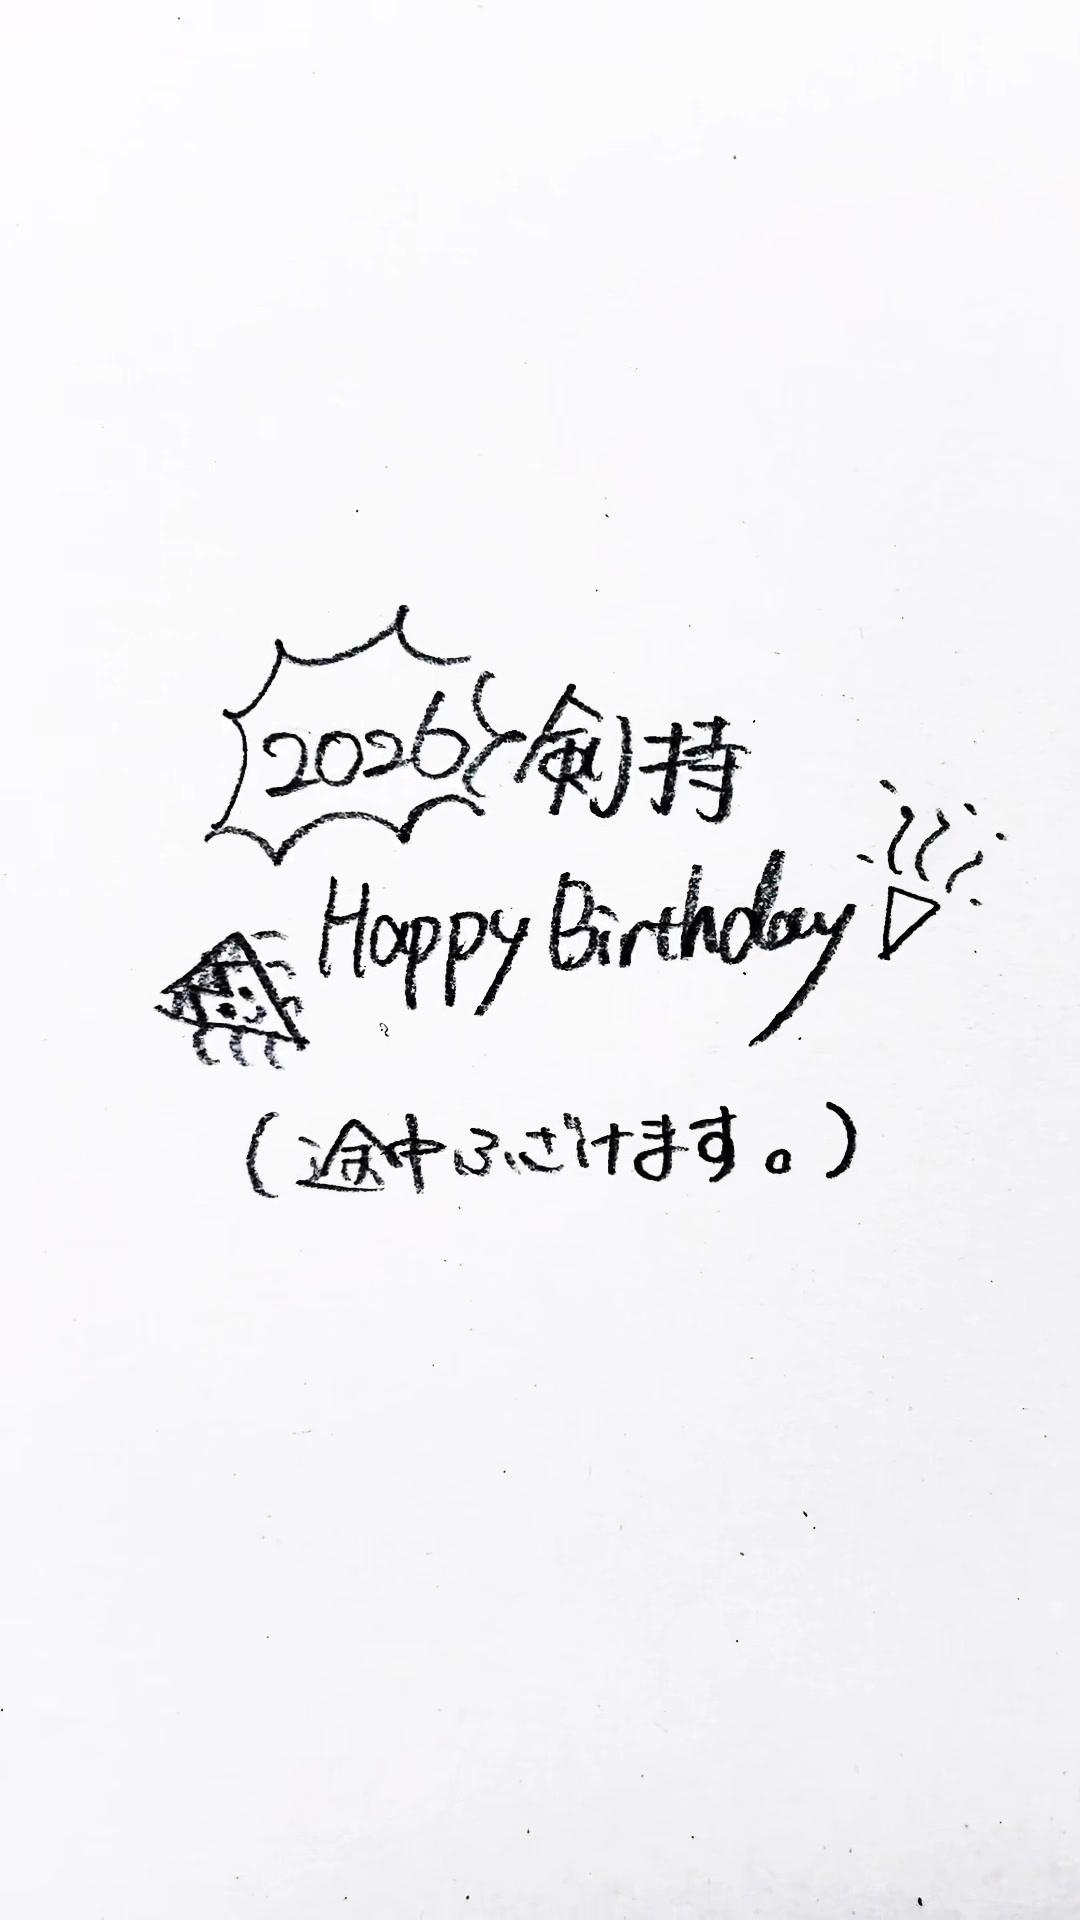 2026 剣持
Happy Birthday
(途中ふざけます。)